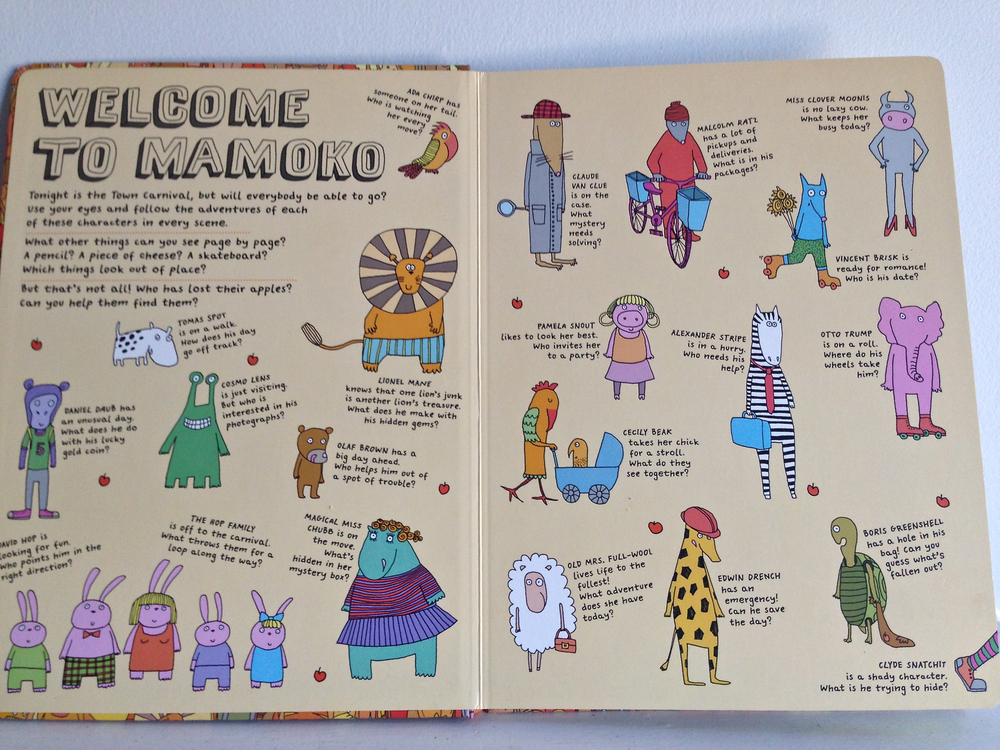 WELCOME
TO MAMOKO
Tonight is the Town Carnival, but will everybody be able to go?
Use your eyes and follow the adventures of each
of these characters in every scene.
What other things can you see page by page?
A pencil? A piece of cheese? A skateboard?
Which things look out of place?
But that's not all! Who has lost their apples?
Can you help them find them?
ADA CHIRP has
someone on her tail.
Who is watching
her every
move?
TOMAS SPOT
is on a walk.
How does his day
go off track?
LIONEL MANE
knows that one lion's junk
is another lion's treasure.
What does he make with
his hidden gems?
DANIEL DAUB has
an unusual day.
What does he do
with his lucky
gold coin?
COSMO LENS
is just visiting.
But who is
interested in his
photographs?
OLAF BROWN has a
big day ahead.
Who helps him out of
a spot of trouble?
DAVID HOP is
looking for fun.
Who points him in the
right direction?
THE HOP FAMILY
is off to the carnival.
What throws them for a
loop along the way?
MAGICAL MISS
CHUBB is on
the move.
What's
hidden in her
mystery box?
CLAUDE
VAN CLUE
is on the
case.
What
mystery
needs
solving?
MALCOLM RATZ
has a lot of
pickups and
deliveries.
What is in his
packages?
MISS CLOVER MOONIS
is no lazy cow.
What keeps her
busy today?
VINCENT BRISK is
ready for romance!
Who is his date?
PAMELA SNOUT
likes to look her best.
Who invites her
to a party?
ALEXANDER STRIPE
is in a hurry.
Who needs his
help?
OTTO TRUMP
is on a roll.
Where do his
wheels take
him?
CECILY BEAK
takes her chick
for a stroll.
What do they
see together?
OLD MRS. FULL-WOOL
lives life to the
fullest!
What adventure
does she have
today?
EDWIN DRENCH
has an
emergency!
Can he save
the day?
BORIS GREENSHELL
has a hole in his
bag! Can you
guess what's
fallen out?
CLYDE SNATCHIT
is a shady character.
What is he trying to hide?